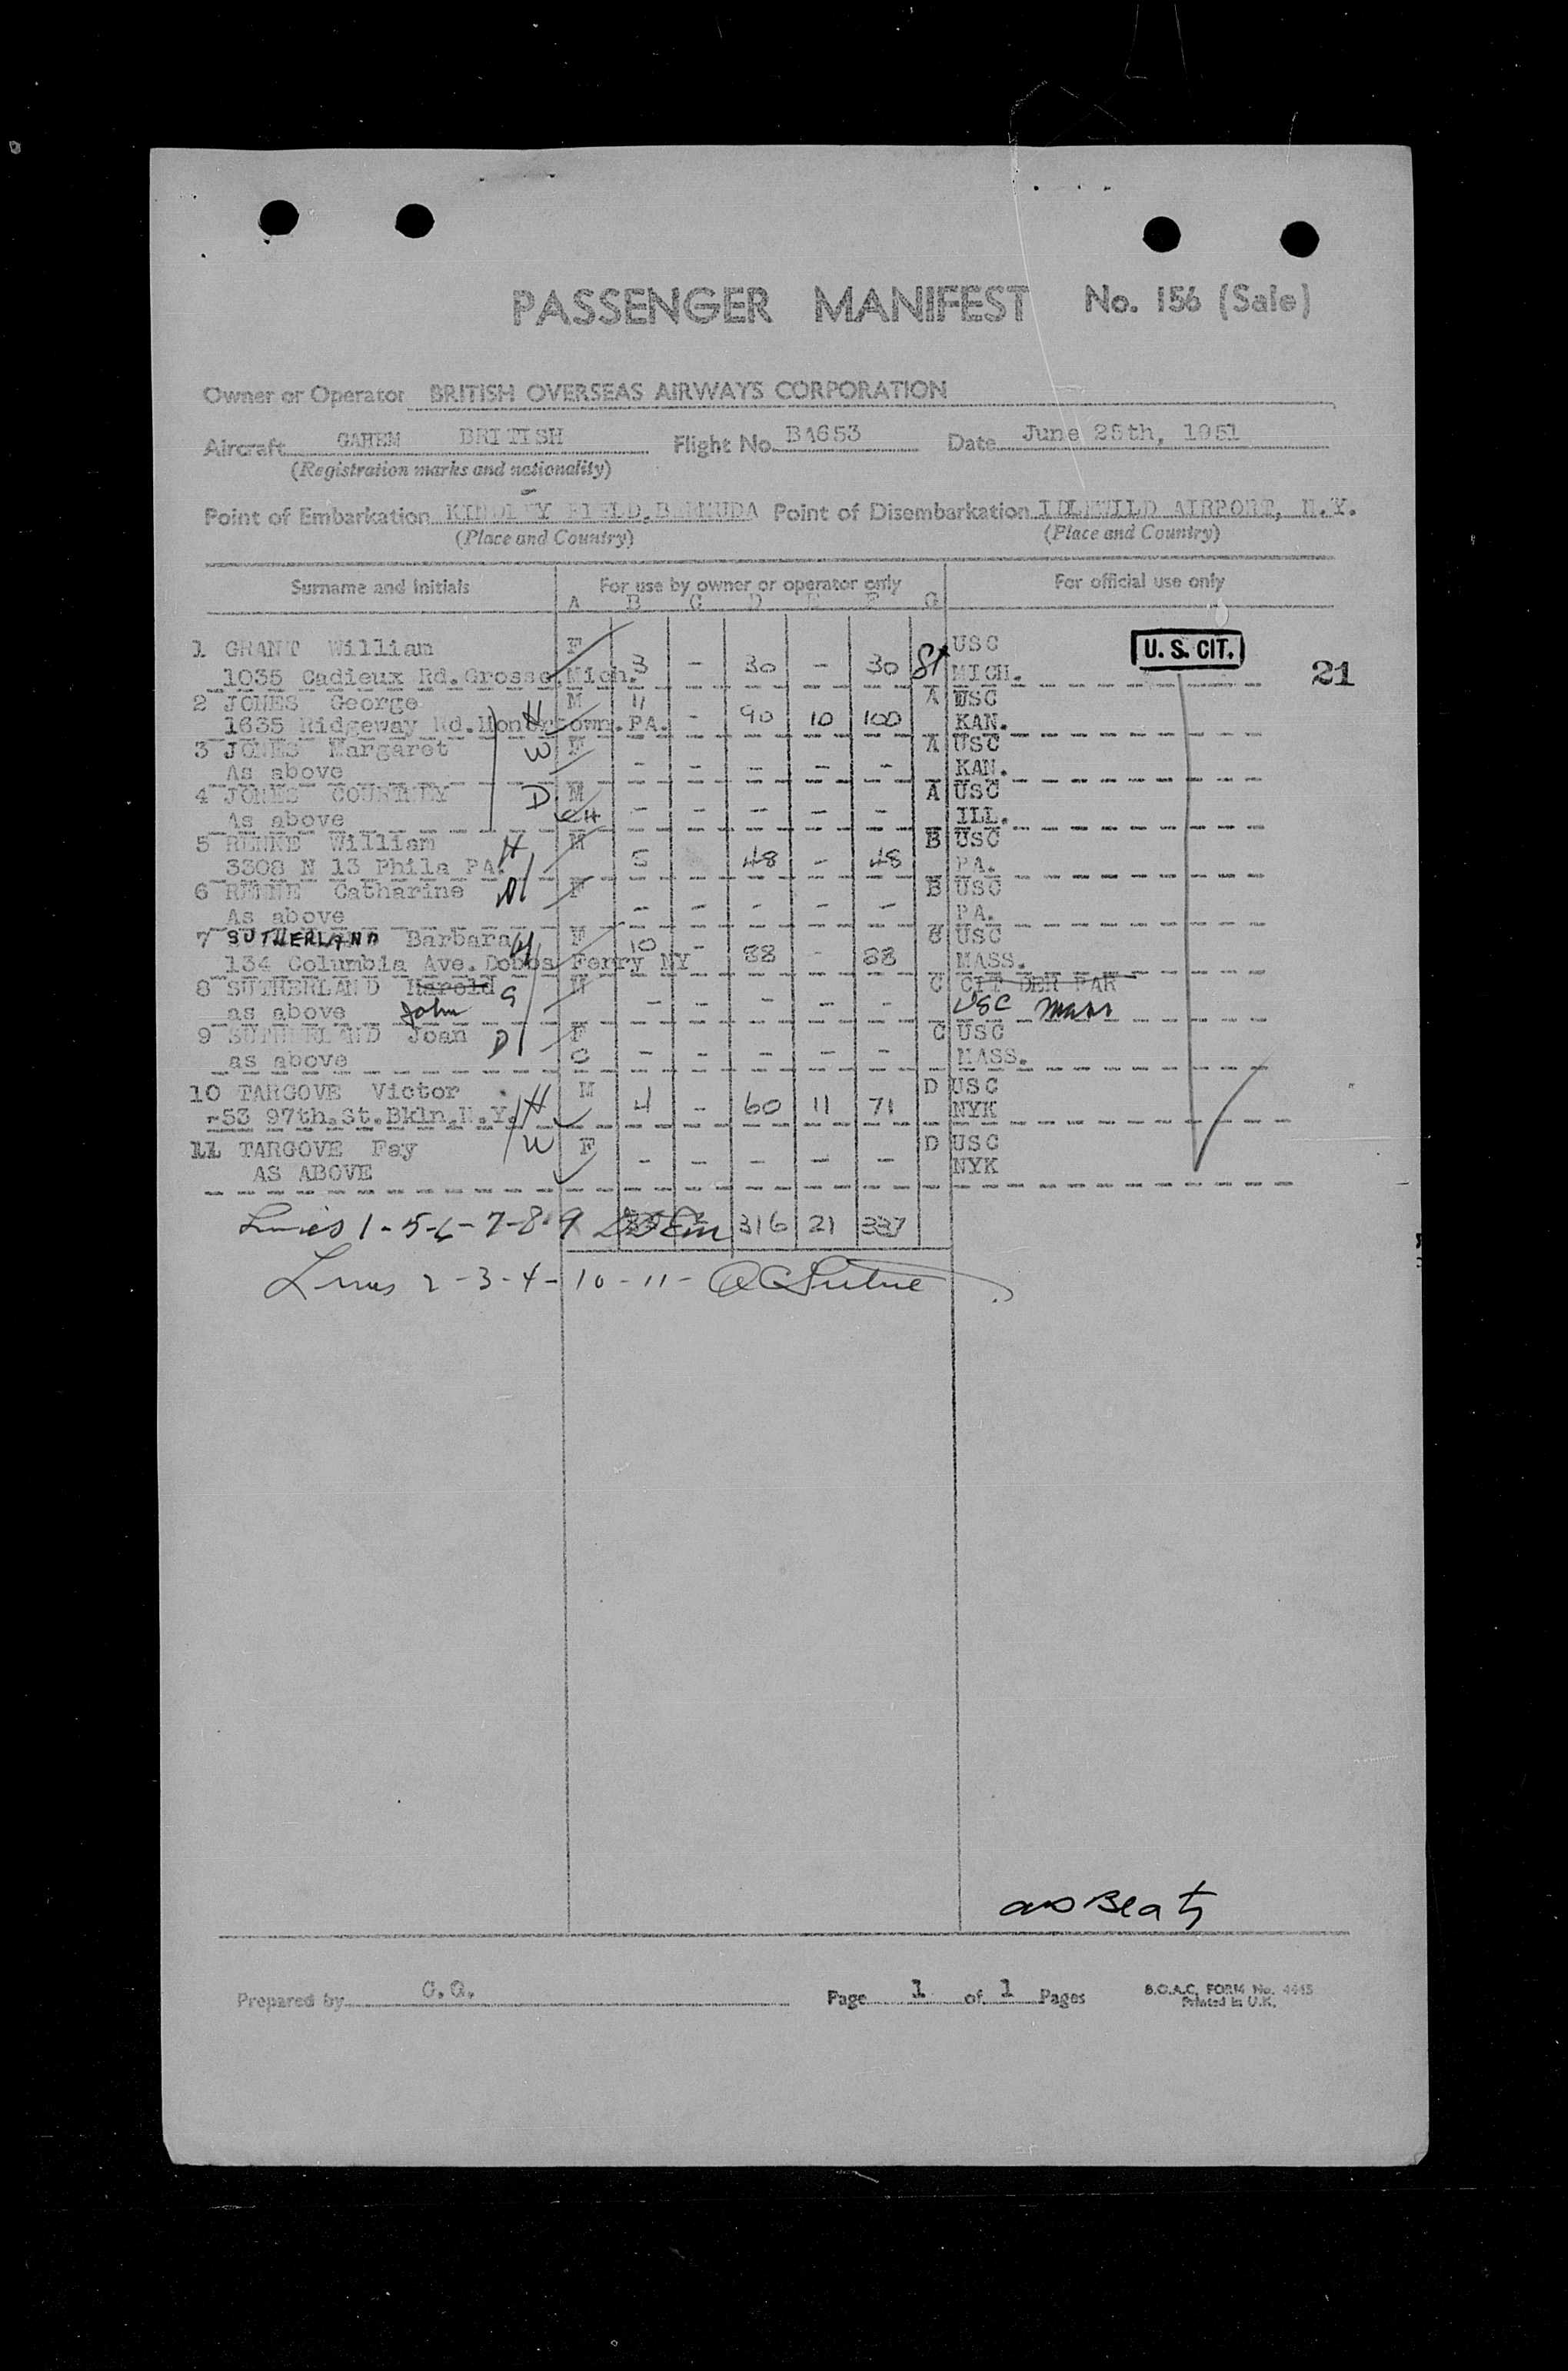 PASSENGER MANIFEST No. 156 (Sale)
Owner or Operator BRITISH OVERSEAS AIRWAYS CORPORATION
Aircraft GAHEN BRITISH Flight No. BA653 Date June 25th, 1951
(Registration marks and nationality)
Point of Embarkation KINDLEY FIELD, BERMUDA Point of Disembarkation IDLEWILD AIRPORT, N.Y.
(Place and Country) (Place and Country)
Surname and Initials For use by owner or operator only For official use only
A B C D E F G
1 GRANT William F USC U. S. CIT.
1035 Cadieux Rd. Grosse Mich. 3 - 30 - 30 MICH. 21
2 JONES George H M 11 A USC
1635 Ridgeway Rd. PA. - 90 10 100 KAN.
3 JONES Margaret W F A USC
As above - - - - - KAN.
4 JONES COURTNEY D. M A USC
As above CH - - - - - ILL.
5 William H M B USC
3308 N 13 Phila PA. 5 48 - 48 PA.
6 Catharine F B USC
As above - - - - - PA.
7 SUTHERLAND Barbara F 10 - USC
134 Columbia Ave. Dobbs Ferry NY 88 - 88 MASS.
8 SUTHERLAND Harold S M C CIT DER PAR
as above John - - - - - USC Mass
9 SUTHERLAND Joan D F C USC
as above C - - - - - MASS.
10 TARGOVE Victor H M D USC
-53 97th. St. Bkln. N.Y. 4 - 60 11 71 NYK
11 TARGOVE Fay W F D USC
AS ABOVE - - - - - NYK
Lines 1-5-6-7-8-9 316 21 337
Lines 2-3-4-10-11-
Prepared by Page 1 of 1 Pages B.O.A.C. FORM No. 4445
Printed in U.K.